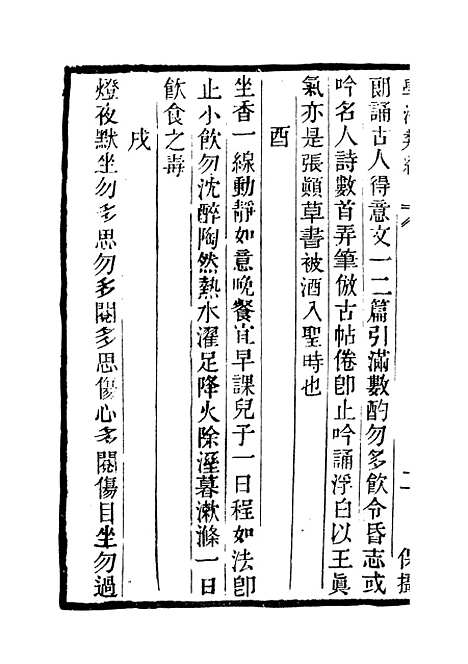 朗誦古人得意文一二篇引滿數酌勿多飲令昏志或
吟名人詩數首弄筆倣古帖倦卽止吟誦浮白以王眞
氣亦是張顚草書被酒入聖時也
酉
坐香一線動靜如意晚餐宜早課兒子一日程如法卽
止小飲勿沈醉陶然熱水濯足降火除溼暮漱滌一日
飲食之毒
戌
燈夜默坐勿多思勿多閱多思傷心多閱傷目坐勿過